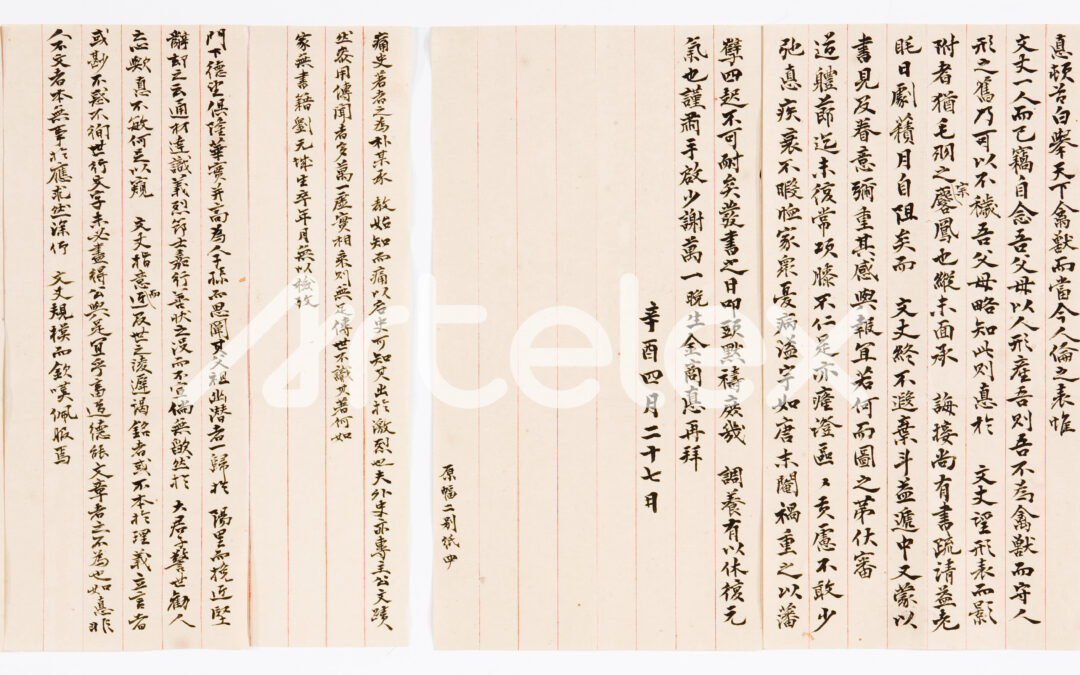 悳頓首白舉天下禽獸而當今人倫之表惟
文丈一人而已竊自念吾父母以人形產吾則吾不為禽獸而守人
形之舊乃可以不穢吾父母略知此則悳於 文丈望形表而影
附者猶毛羽之宗麐鳳也縱未面承 誨接尚有書疏請益
眊日劇積月自阻矣而 文丈終不遐棄斗益遞中又蒙以
書見及眷意彌重其感與報宜若何而圖之第伏審
道軆節迄未復常項膝不仁足亦瘇澁區々貢慮不敢少
弛悳疾衰不暇恤家眾憂病溢宇如唐末閹禍重之以藩
孽四起不可耐矣發書之日叩頭黙禱庶幾 調養有以休復元
氣也謹齋手啟少謝萬一晚生金商悳再拜
辛酉四月二十七日
原幅二別紙四
痛史著者之為朴某承 教始知而痛以名史可知其出於激烈也夫外史亦專主公文蹟
然後用傳聞者多萬一虛實相乘則無足傳世不識其著何如
家無書籍劉元城生卒年月無以檢攷
門下德望俱隆華實并高為人子孫而思闡其父祖幽潛者一歸於 陽里而挽近堅
辭却之云通材達識義烈節士嘉行善狀之沒而不宣倘無歉然於 大君子警世勸人
之心歟悳不敏何足以窺 文丈指意而近及世之淩遲謁銘者或不本於理義立言者
或尠不 不 世行文字未必盡得公與是宜乎蓄道德能文章者之不為也如悳非
人不文者本無事於應求然深仰 文丈規模而欽嘆佩服焉
Artelex